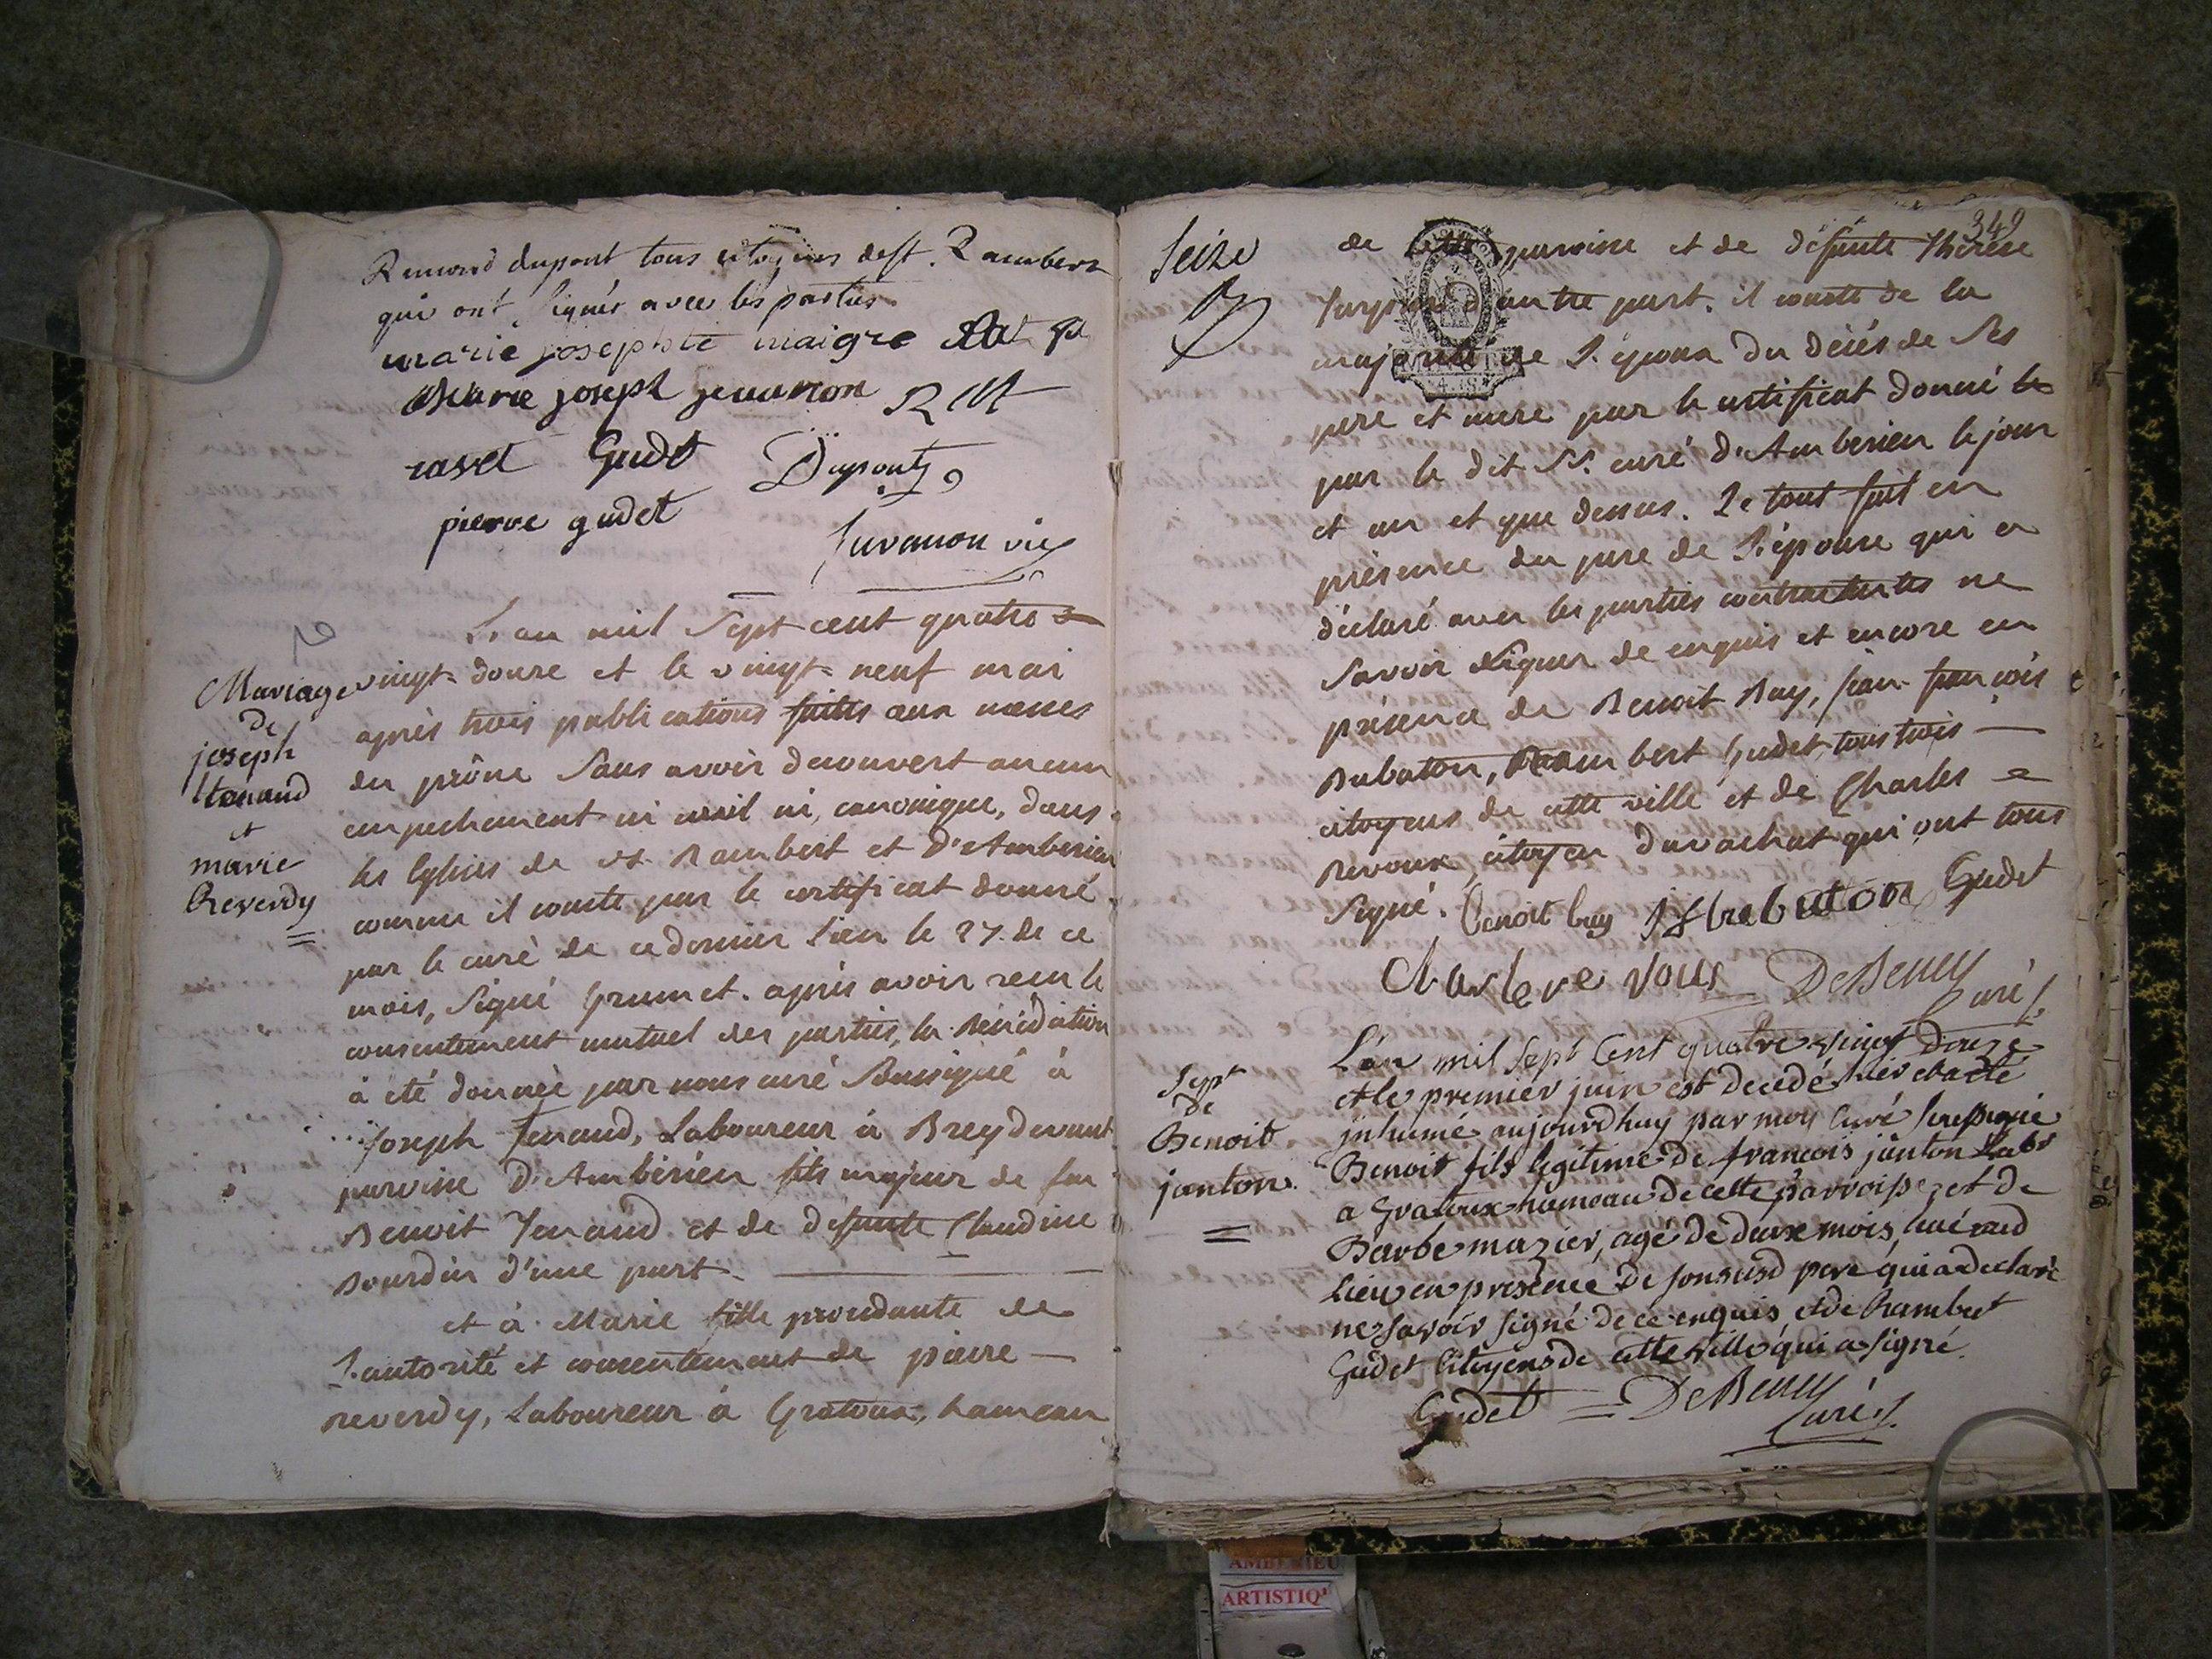 Remond dupont tous citoyens de st. Rambert
qui ont signés avec les parties
marie josephte maigre
Marie joseph juvanon
ravet Gudet Dupont
pierre gudet
Juvanon vic
L'an mil sept cent quatre
Mariage
de
joseph
tenand
et
marie
Reverdy
vingt-douze et le vingt-neuf mai
après trois publications faites aux messes
du prône sans avoir decouvert aucun
empechement ni civil ni canonique, dans
les Eglises de st Rambert et d'Amberieu
comme il conste par le certificat donné
par le curé de ce dernier lieu le 27. de ce
mois, signé Grumet. après avoir reçu le
consentement mutuel des parties, la Bénédiction
à été donnée par nous curé soussigné à
Joseph Tenand, Laboureur à Breydevant
paroisse d'Ambérieu fils majeur de feu
Benoit Tenand et de defunte Claudine
Bourdin d'une part.
et à Marie fille procedante de
l'autorité et consentement de pierre
reverdy, Laboureur à Gratoux, hameau
Seize
349
de cette paroisse et de défunte therese
d'autre part. il conste de la
majorité de l'epoux du décés de ses
pere et mere par le certificat donné
par le dit sr. curé d'Amberieu le jour
et an et que dessus. Le tout fait en
présence du pere de l'épouse qui a
déclaré avec les parties contractantes ne
savoir signer de enquis et encore en
présence de Benoit Buy, jean françois
Babaton, Rambert Gudet, tous trois
citoyens de cette ville et de Charles
Revoux, citoyen davachat qui ont tous
signé. Benoit buy Gudet
Charle re vous DeBeney
Curé
Sept
de
Benoit
janton
L'an mil sept Cent quatre vingt Douze
et le premier juin est decedé hier et a eté
inhumé aujourdhuy par moy Curé soussigné
Benoit fils legitime de françois janton Labr
a Gratoux hameau de cette parroisse, et de
Barbe mazier, agé de deux mois,
lieu en presence de son susd pere qui a declaré
ne savoir signé de ce enquis, et de Rambert
Gudet Citoyens de cette ville qui a signé.
Gudet DeBeney
Curé
AMBERIEU
ARTISTIQ